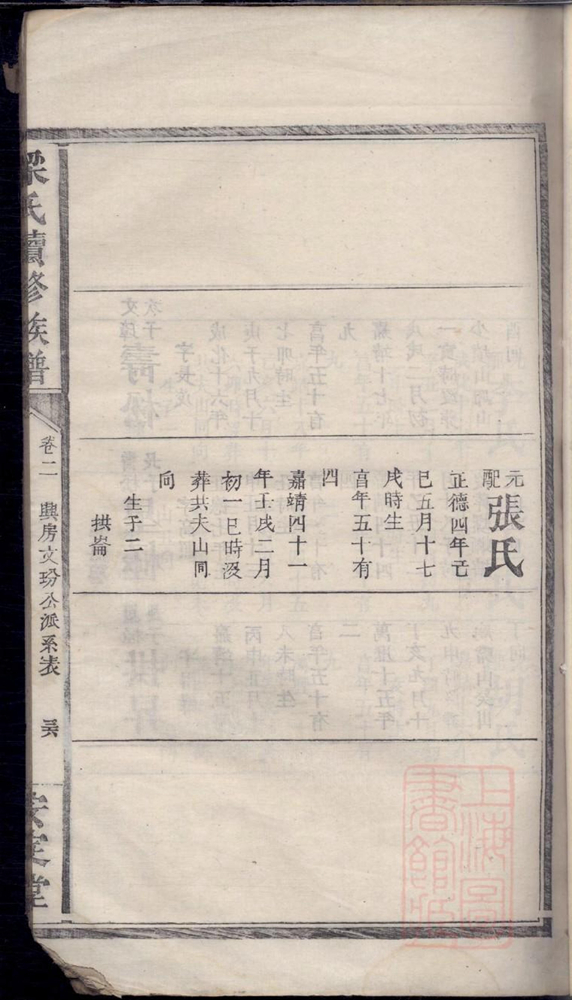 元配張氏
正德四年己
巳五月十七
戌時生
亯年五十有
四
嘉靖四十一
年壬戌二月
初一巳時沒
葬共夫山同
向
生子二
拱崙
梁氏續修族譜
卷二
興房文玢公派系表
安定堂
上海圖書館藏